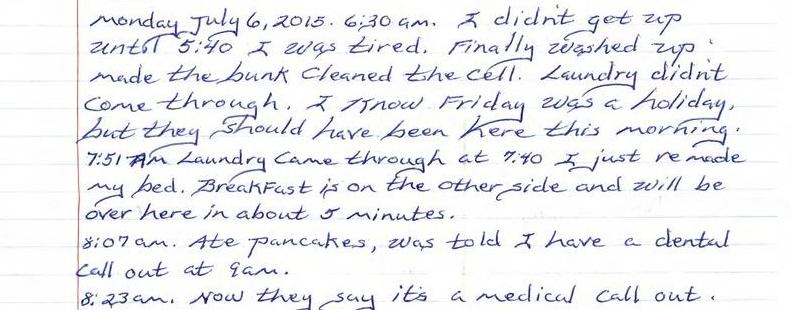 Monday July 6, 2015. 6:30 am. I didn't get up
until 5:40 I was tired. Finally washed up
made the bunk Cleaned the cell. Laundry didn't
come through. I know Friday was a holiday,
but they should have been here this morning.
7:51 AM Laundry came through at 7:40 I just remade
my bed. BreakFast is on the other side and will be
over here in about 5 minutes.
8:07 am. Ate pancakes, was told I have a dental
call out at 9am.
8:23 am. Now they say it's a medical call out.